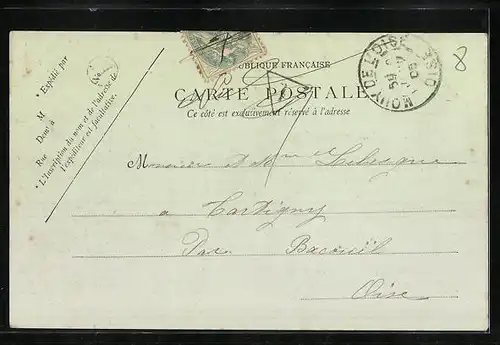 RÉPUBLIQUE FRANÇAISE
CARTE POSTALE
Ce côté est exclusivement réservé à l'adresse
* Expédié par
M
Demt à
Rue
* L'Inscription du nom et de l'adresse de
l'expéditeur est facultative.
MOUY DE L'OISE OISE
8
Monsieur et Mme Lebesgue
a Tartigny
Par Bacouël
Oise